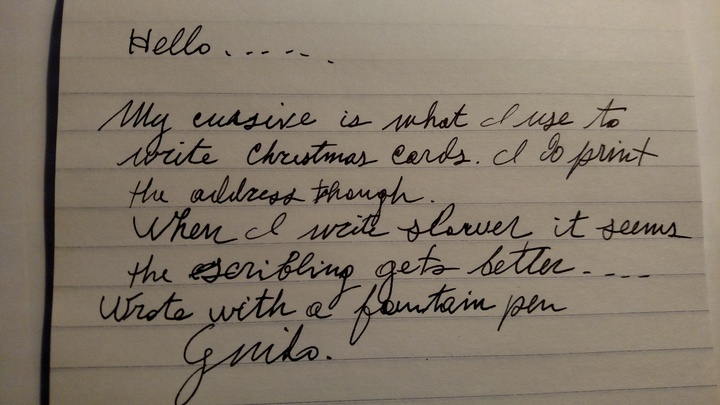 Hello......
My cursive is what I use to
write Christmas cards. I do print
the address though.
When I write slower it seems
the scribling gets better....
Wrote with a fountain pen
Guido.